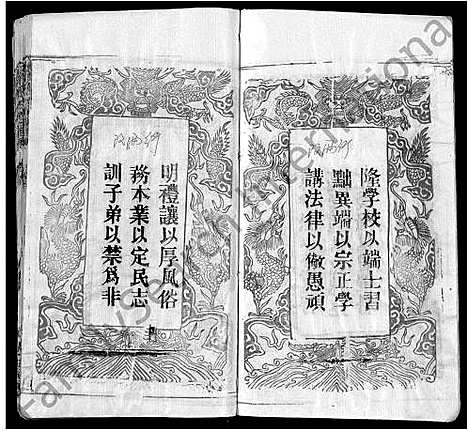 隆學校以端士習
黜異端以宗正學
講法律以儆愚頑
明禮讓以厚風俗
務本業以定民志
訓子弟以禁為非